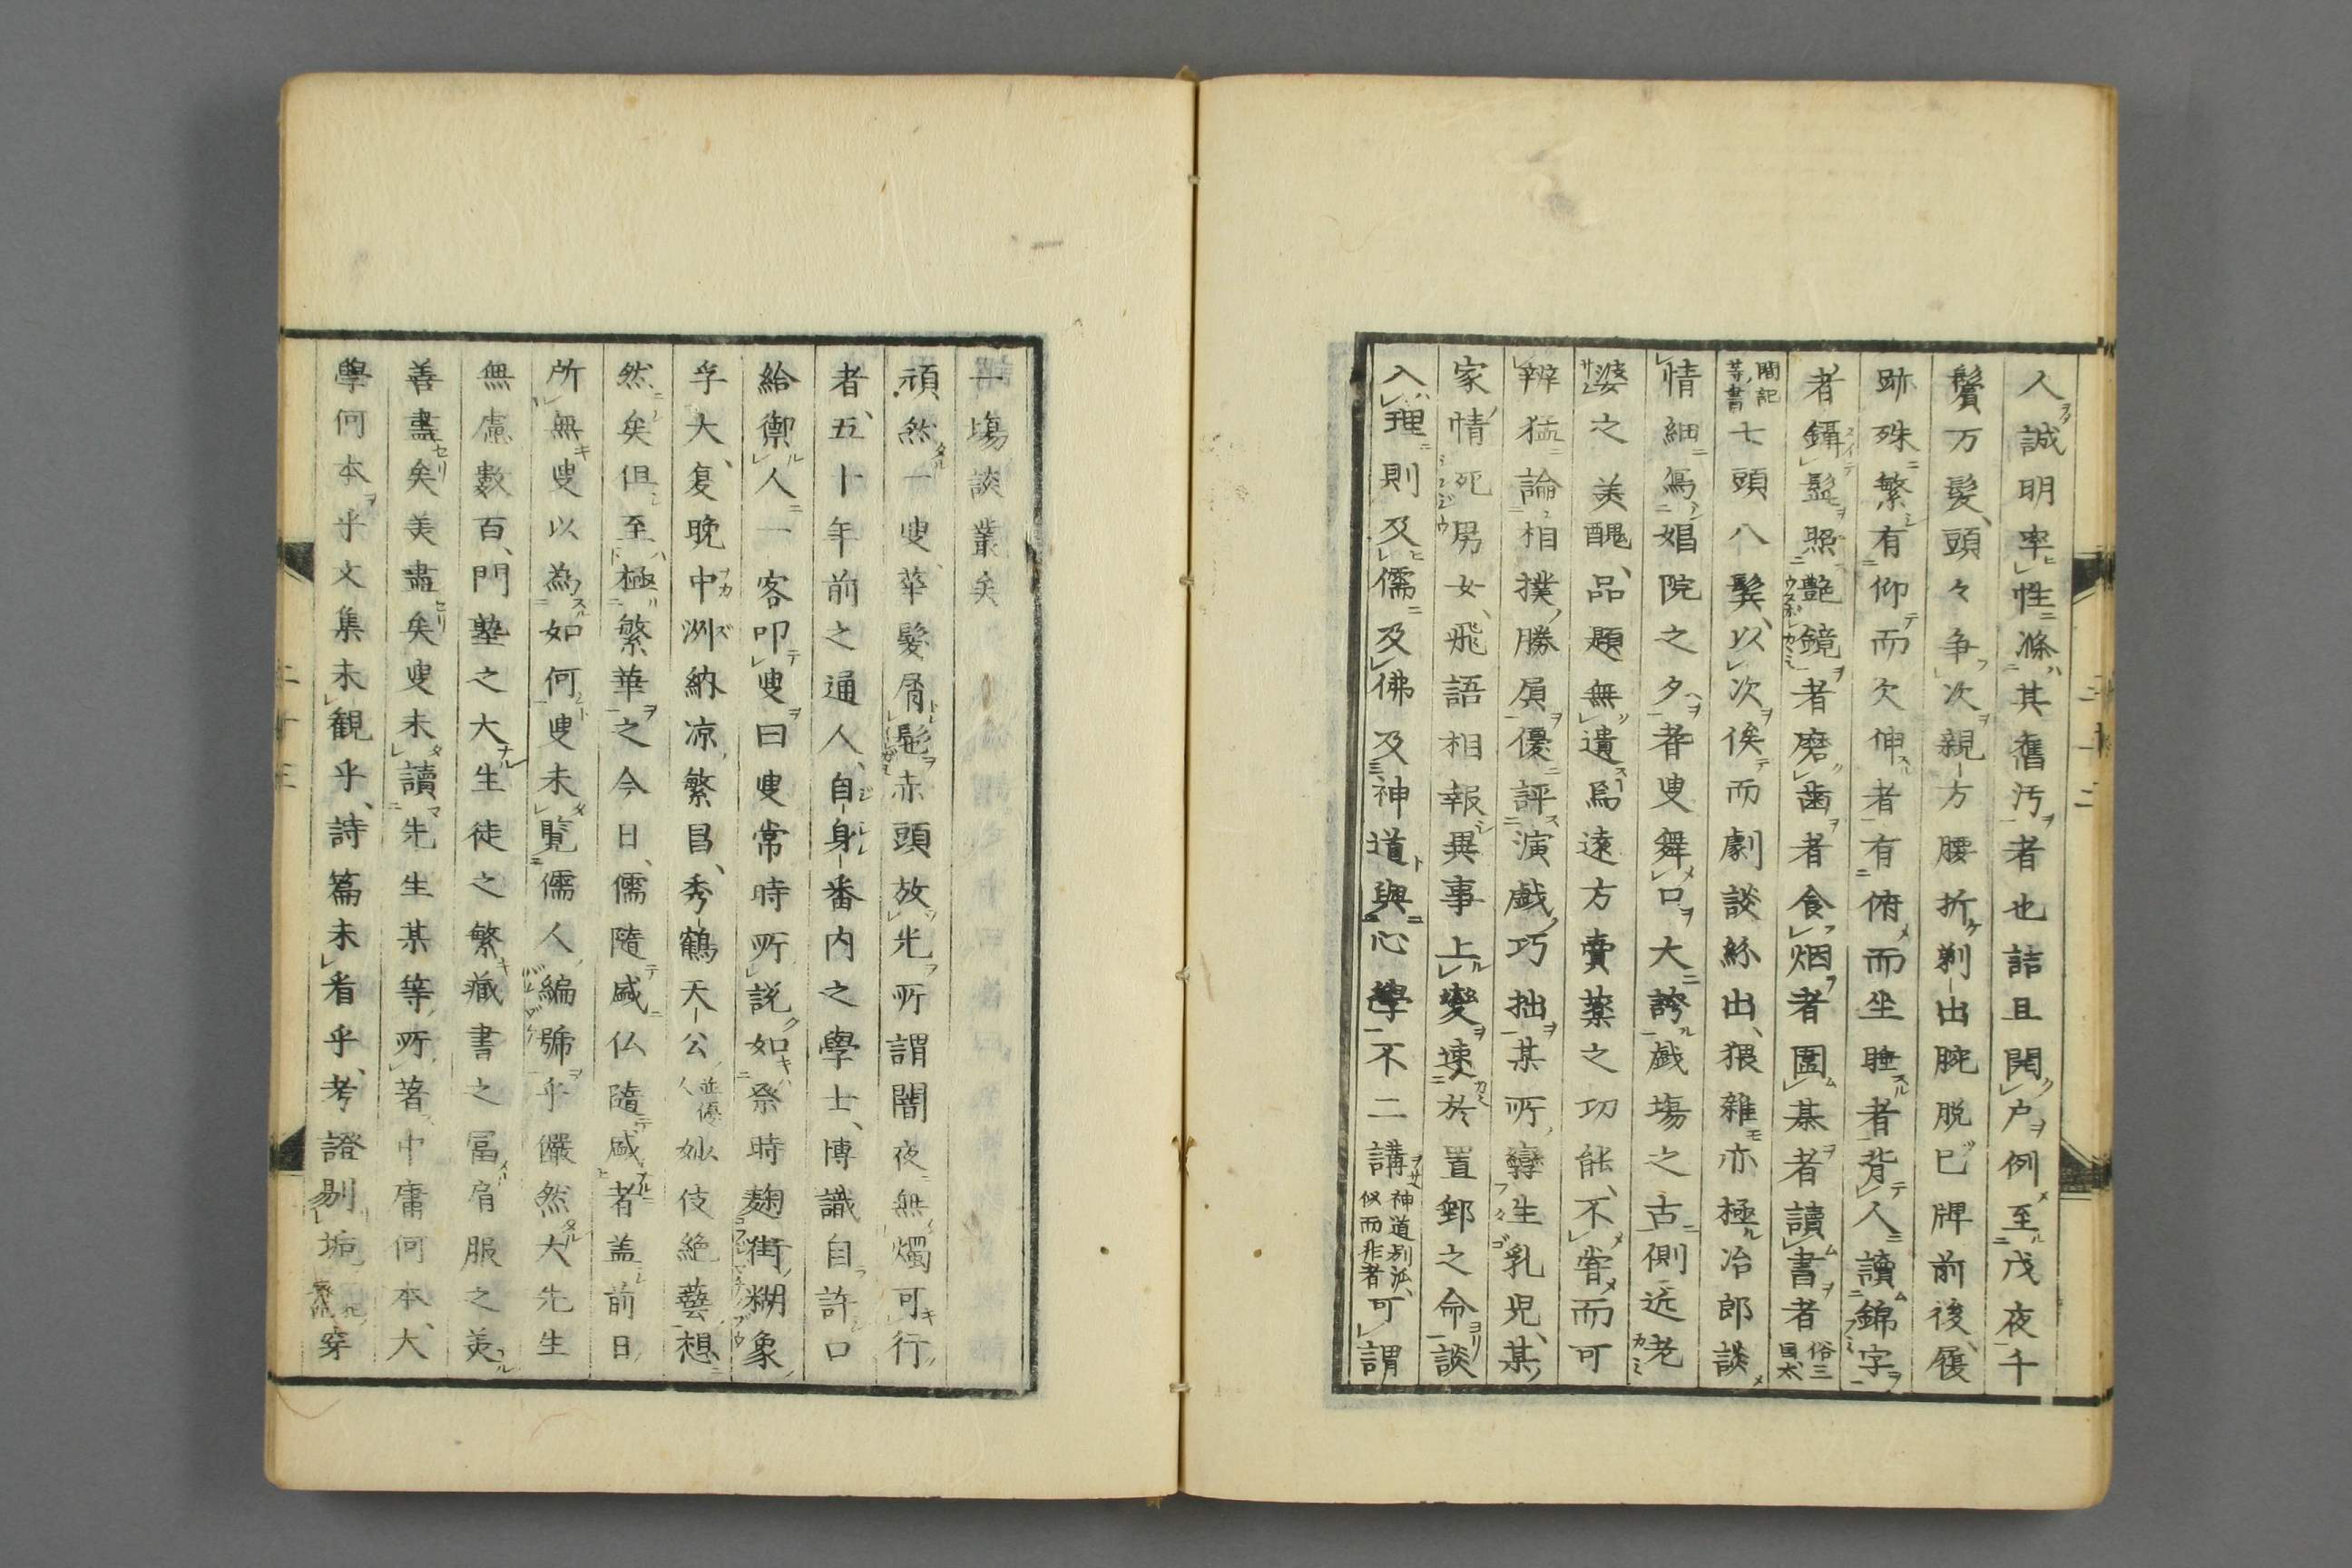 人誠明率性滌其舊汚者也詰且開戸例至戊夜千
鬢万髪、頭々争次親方腰折剃出腕脱巳牌前後、履
跡殊繁有仰而欠伸者有俯而坐睡者背人讀錦字
者鑷髭照艶鏡者磨歯者食烟者圍棊者讀書者俗三国、太
閤記等ノ書七頭八髪、以次俟而劇談絲出、猥雜亦極冶郎談
情細寫娼院之夕者叟舞口大誇戯塲之古側近老
婆之美醜、品題無遺焉遠方賣薬之功能、不嘗而可
辨猛論相撲勝屓優評演戯巧拙某所孿生乳児、某
家情死男女、飛語相報異事上變速於置郵之命談
入理則及儒及佛及神道與心學不二講神道別派、似而非者可謂
一塲談叢矣
頑然一叟、華髪屑髢赤頭放光所謂闇夜無燭可行
者、五十年前之通人、自身番内之學士、博識自許口
給禦人一客叩叟曰叟常時所説如祭時麹街糊象、
乎大、復晩中洲納凉、繁昌、秀鶴天公並優人妙伎絶藝想
然矣但至極繁華之今日、儒隨盛仏隨盛者盖前日
所無叟以為如何叟未覧儒人編號乎儼然大先生
無慮數百、門塾之大生徒之繁藏書之冨肩服之美
善盡矣美盡矣叟未讀先生某等所著中庸何本、大
學何本乎文集未觀乎、詩篇未看乎、考證剔垢穿
二十二
二十三